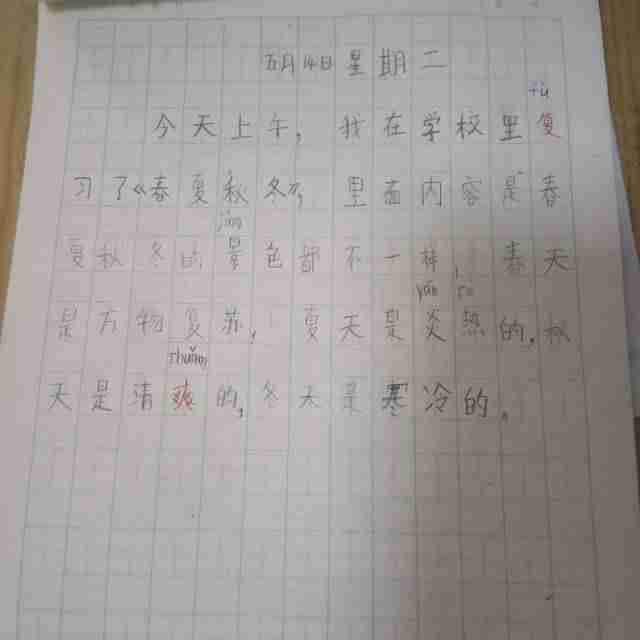 五月14日星期二
fù
今天上午，我在学校里复
习了《春夏秋冬》，里面内容是春
jǐng
夏秋冬的景色都不一样，春天
yán rè
是万物复苏，夏天是炎热的，秋
shuǎng
天是清爽的，冬天是寒冷的。